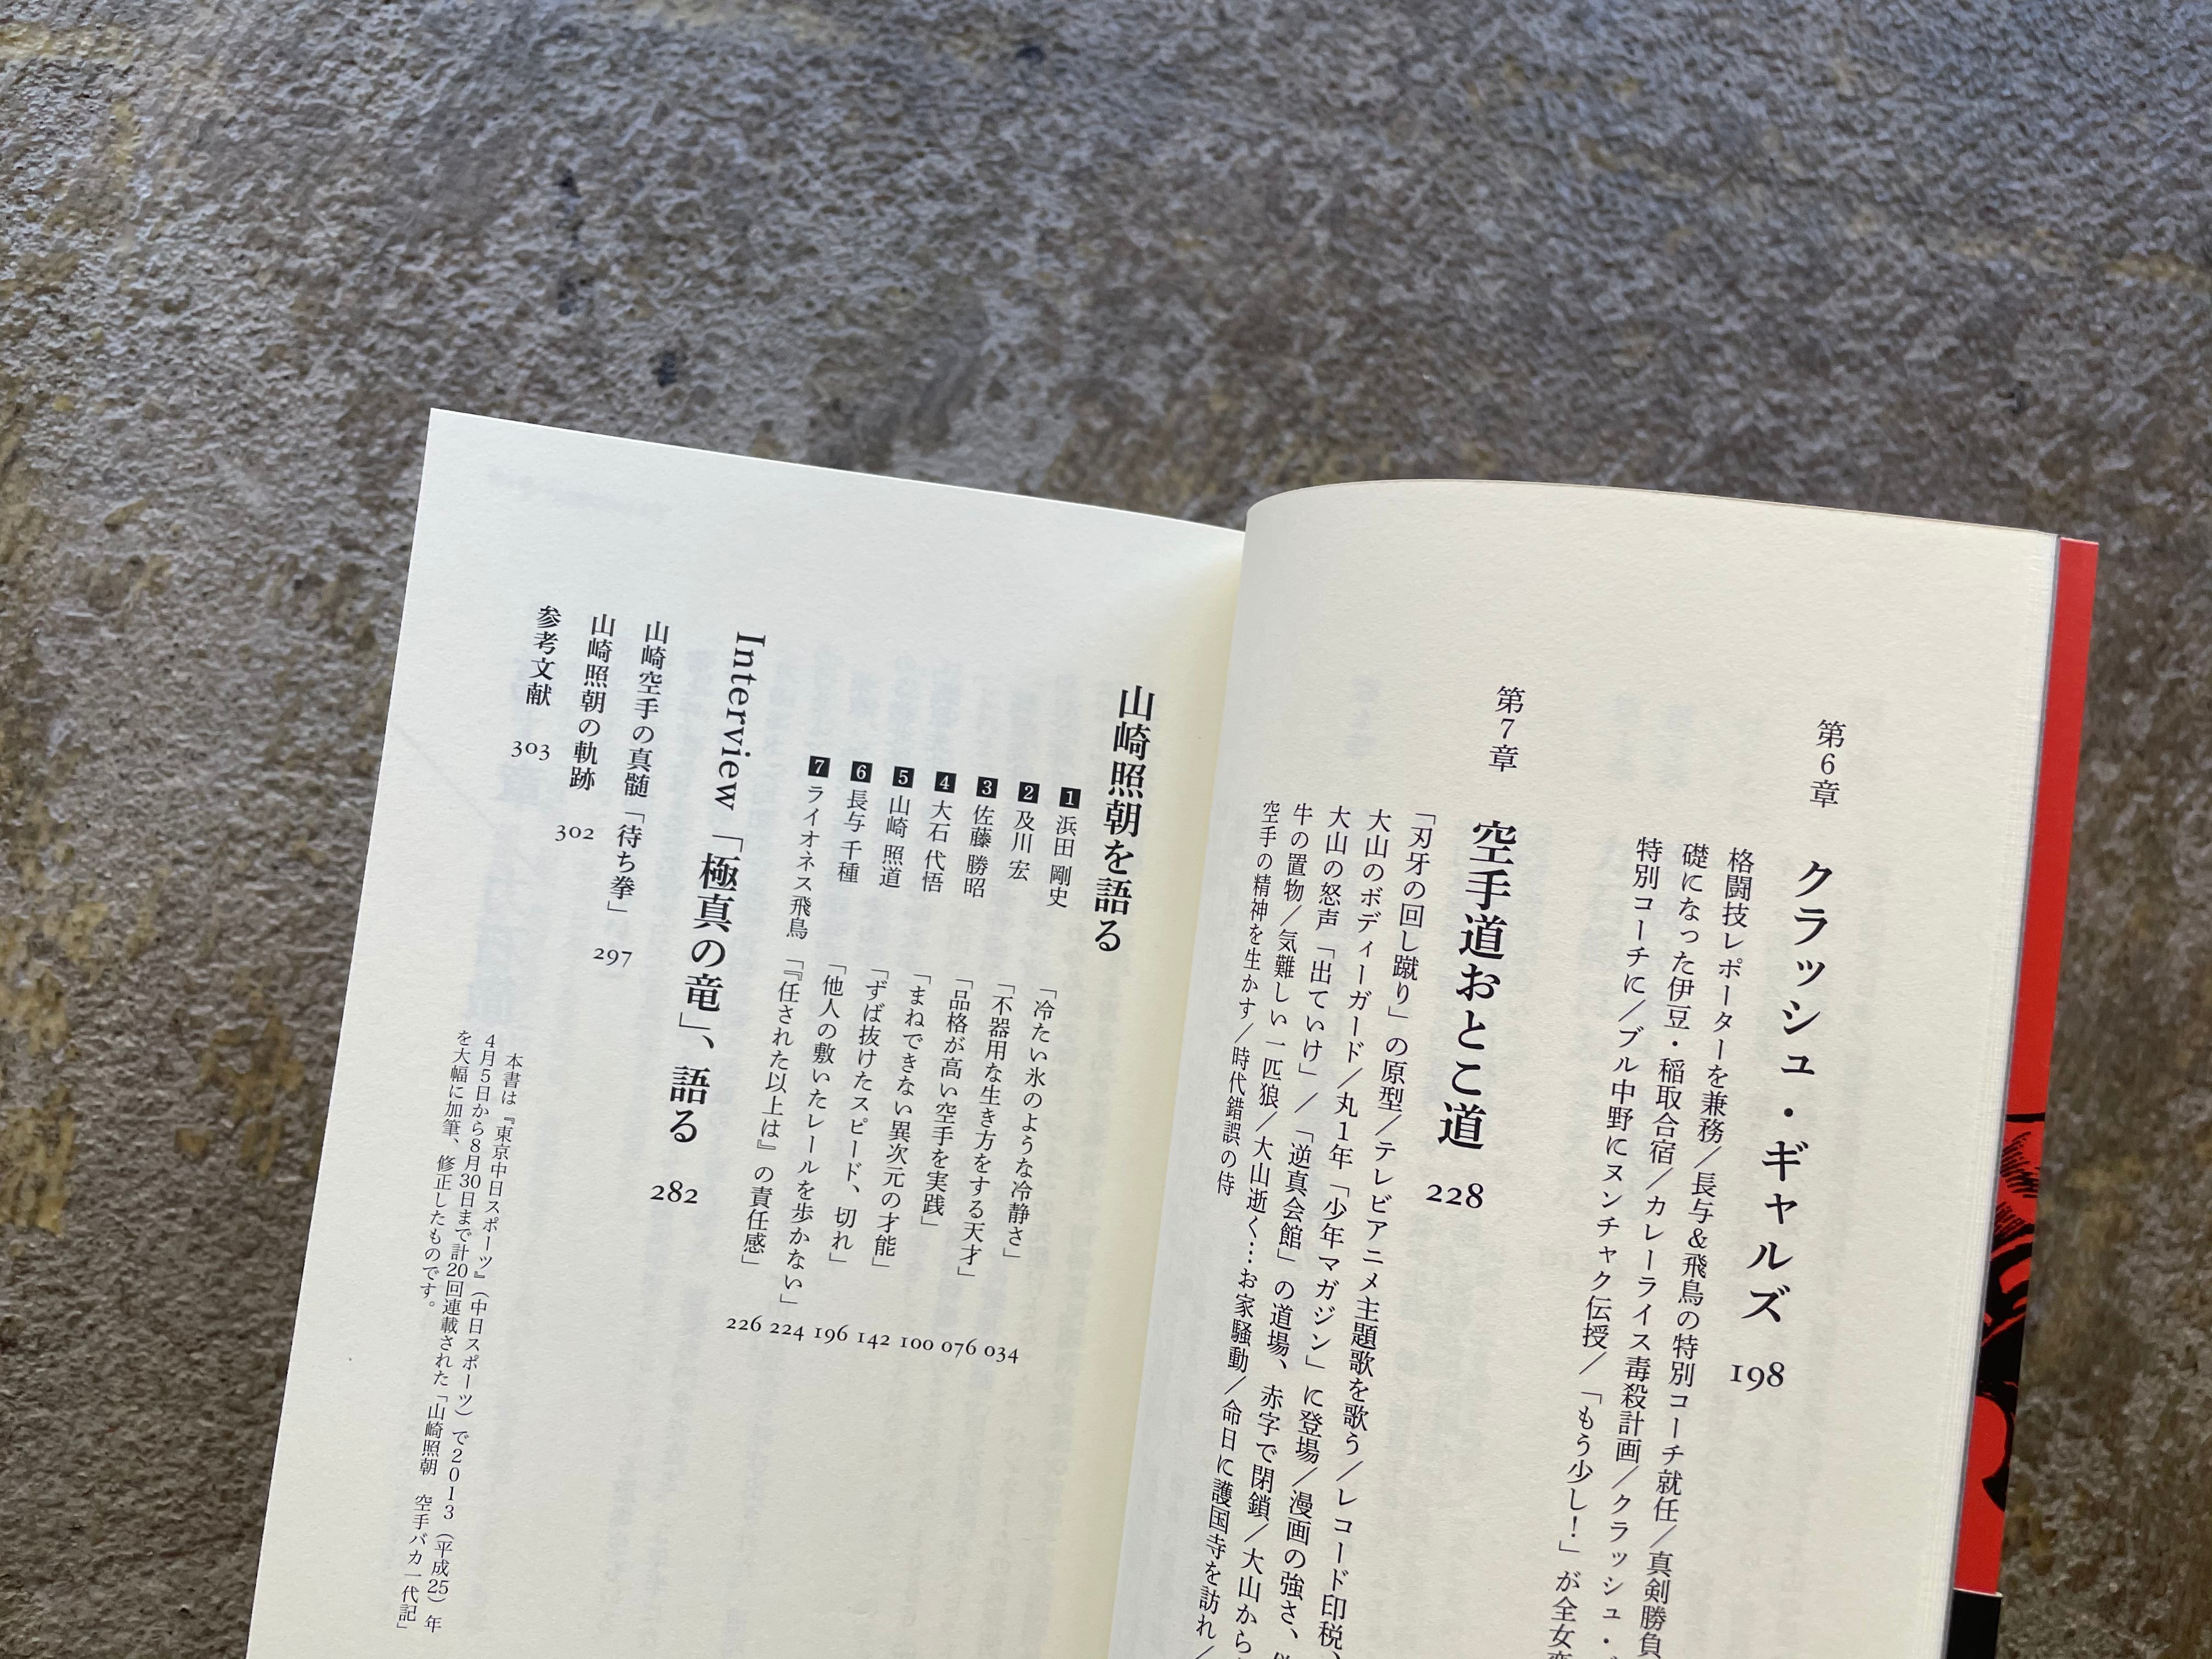 第6章 クラッシュ・ギャルズ 198
格闘技レポーターを兼務／長与＆飛鳥の特別コーチ就任／真剣勝負
礎になった伊豆・稲取合宿／カレーライス毒殺計画／クラッシュ・
特別コーチに／ブル中野にヌンチャク伝授／「もう少し！」が全女
第7章 空手道おとこ道 228
「刃牙の回し蹴り」の原型／テレビアニメ主題歌を歌う／レコード印税、
大山のボディーガード／丸1年「少年マガジン」に登場／漫画の強さ、
大山の怒声「出ていけ」／「逆真会館」の道場、赤字で閉鎖／大山から
牛の置物／気難しい一匹狼／大山逝く…お家騒動／命日に護国寺を訪れ／
空手の精神を生かす／時代錯誤の侍
山崎照朝を語る
1 浜田 剛史 「冷たい氷のような冷静さ」 034
2 及川 宏 「不器用な生き方をする天才」 076
3 佐藤 勝昭 「品格が高い空手を実践」 100
4 大石 代悟 「まねできない異次元の才能」 142
5 山崎 照道 「ずば抜けたスピード、切れ」 196
6 長与 千種 「他人の敷いたレールを歩かない」 224
7 ライオネス飛鳥 「『任された以上は』の責任感」 226
Interview 「極真の竜」、語る 282
山崎空手の真髄「待ち拳」 297
山崎照朝の軌跡 302
参考文献 303
本書は『東京中日スポーツ』（中日スポーツ）で2013（平成25）年
4月5日から8月30日まで計20回連載された「山崎照朝 空手バカ一代記」
を大幅に加筆、修正したものです。